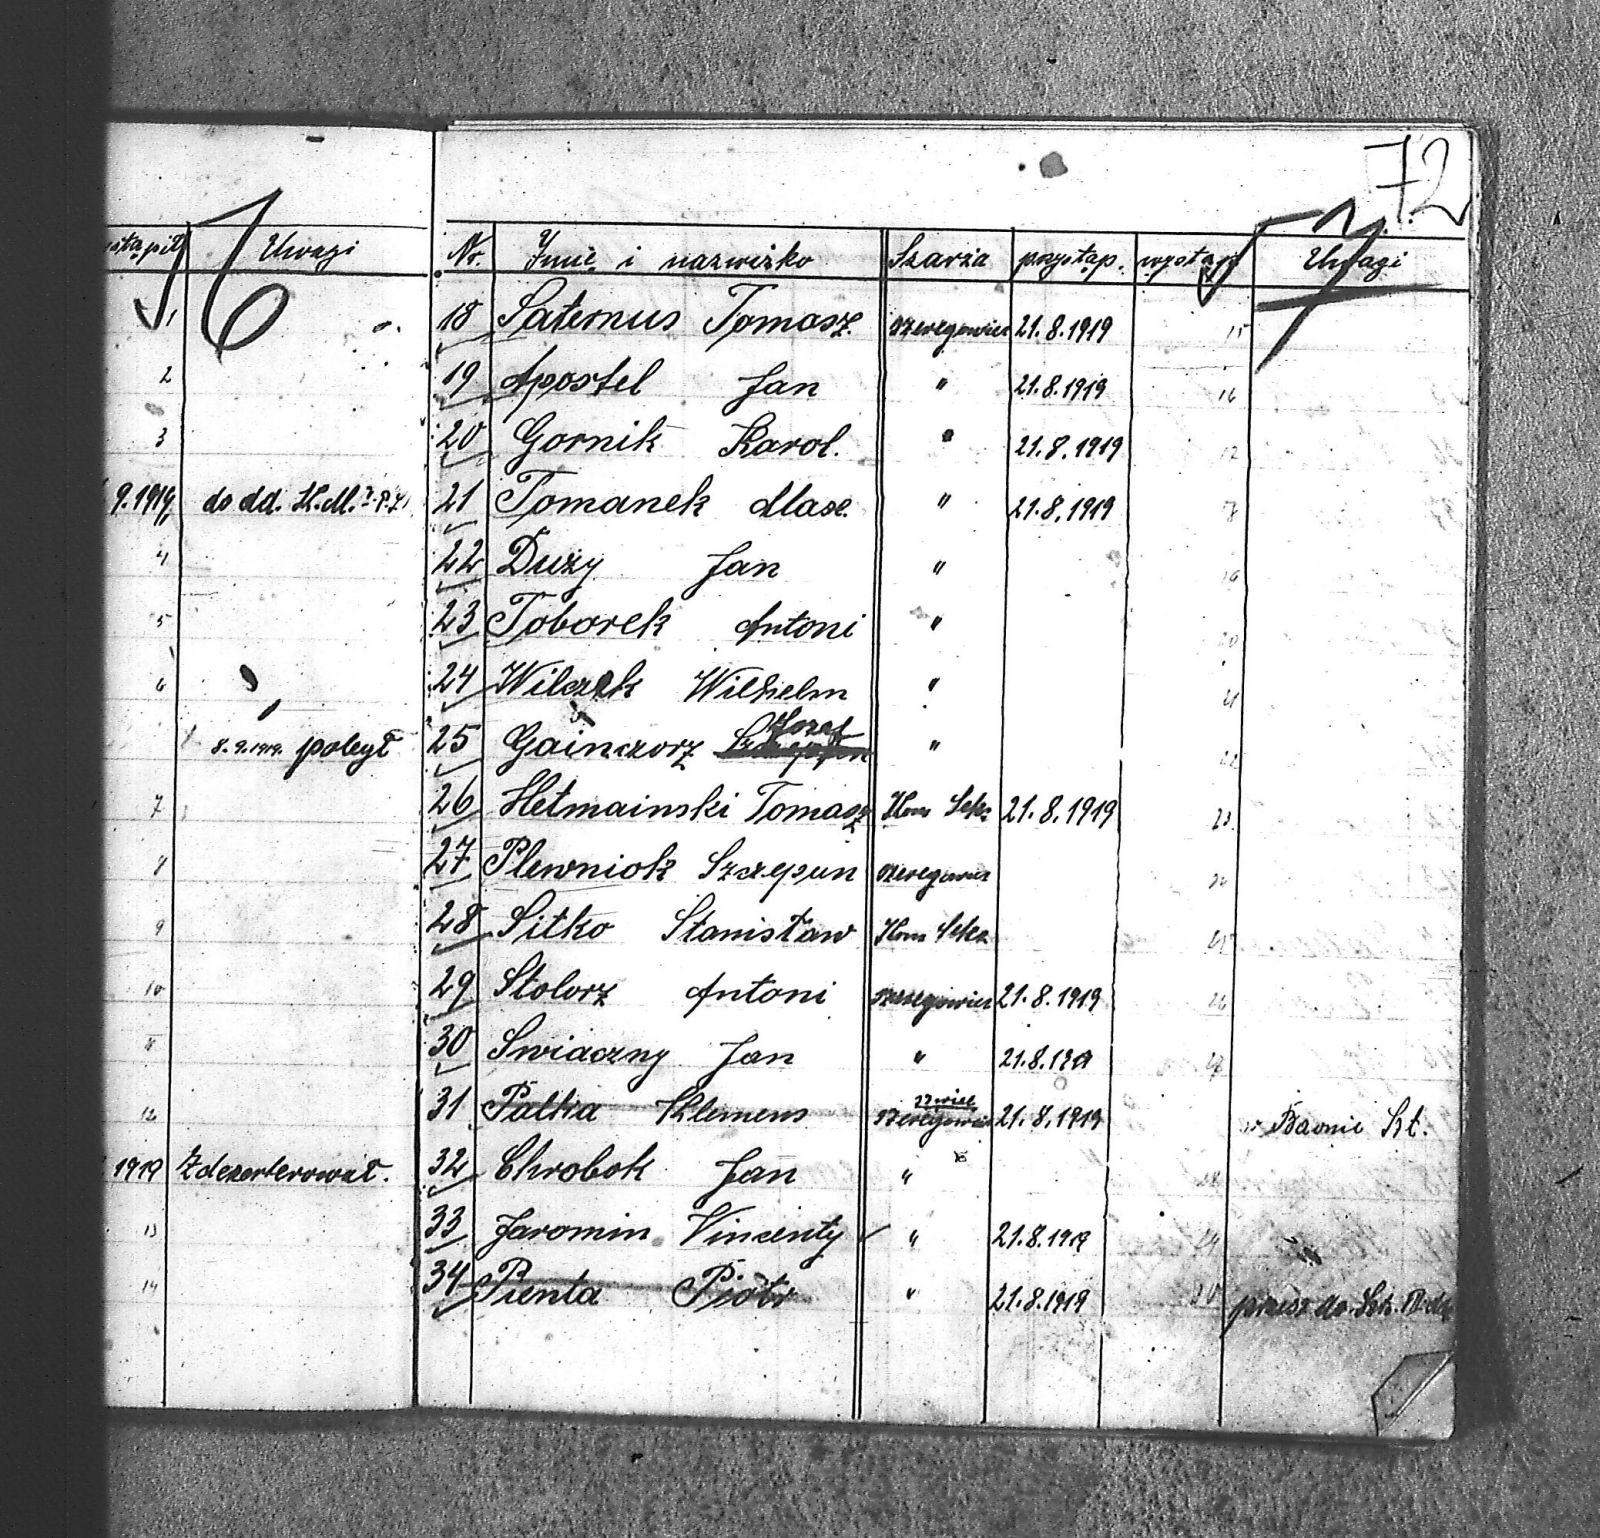 72
6
7
Uwagi
1
2
3
9.1919, do dd. K.M.
4
5
6
8.9.1919. poległ
7
8
9
10
11
12
1919 Zdezerterował.
13
14
Nr. Imię i nazwisko Szarża przystąp. wystąp. Uwagi
18 Saternus Tomasz szeregowiec 21.8.1919 15
19 Apostel Jan " 21.8.1919 16
20 Gornik Karol. " 21.8.1919 17
21 Tomanek Max. " 21.8.1919 18
22 Duzy Jan " 19
23 Toborek Antoni " 20
24 Wilczek Wilhelm " 21
25 Gainczorz Józef " 22
26 Hetmainski Tomasz Kom Sekc 21.8.1919 23
27 Plewniok Szczepan szeregowiec 24
28 Sitko Stanisław Kom Sekc 25
29 Stolorz Antoni szeregowiec 21.8.1919 26
30 Swiaczny Jan " 21.8.1919 27
31 Palka Klemens szeregowiec 21.8.1919 w Baonie Szt.
32 Chrobok Jan " 28
33 Jaromin Vincenty " 21.8.1919 29
34 Pienta Piotr " 21.8.1919 30 przesz. do